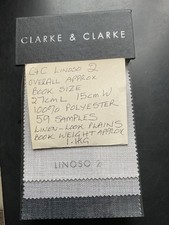 CLARKE & CLARKE
C+C LINOSO 2
OVERALL APPROX
BOOK SIZE
27cmL 15cm W
100% POLYESTER
59 SAMPLES
LINEN-LOOK PLAINS
BOOK WEIGHT APPROX
1.1KG
LINOSO 2